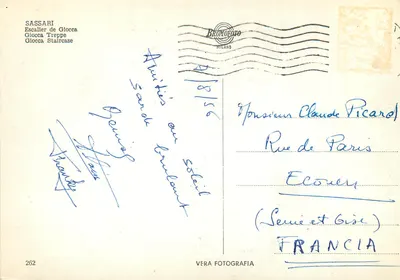 SASSARI
Escalier de Giocca
Giocca Treppe
Giocca Staircase
MILANO
2/8/56
Amitiés au soleil
sarde brulant
Monsieur Claude Picard
Rue de Paris
Ecouen
(Seine et Oise)
FRANCIA
262
VERA FOTOGRAFIA